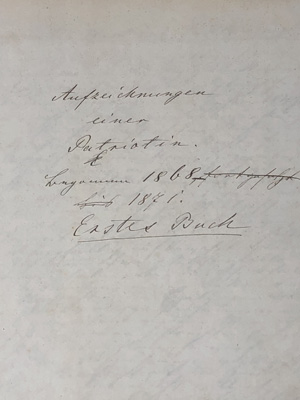 Aufzeichnungen
einer
Patriotin.
begonnen 1868, fortgesetzt
bis 1871.
Erstes Buch